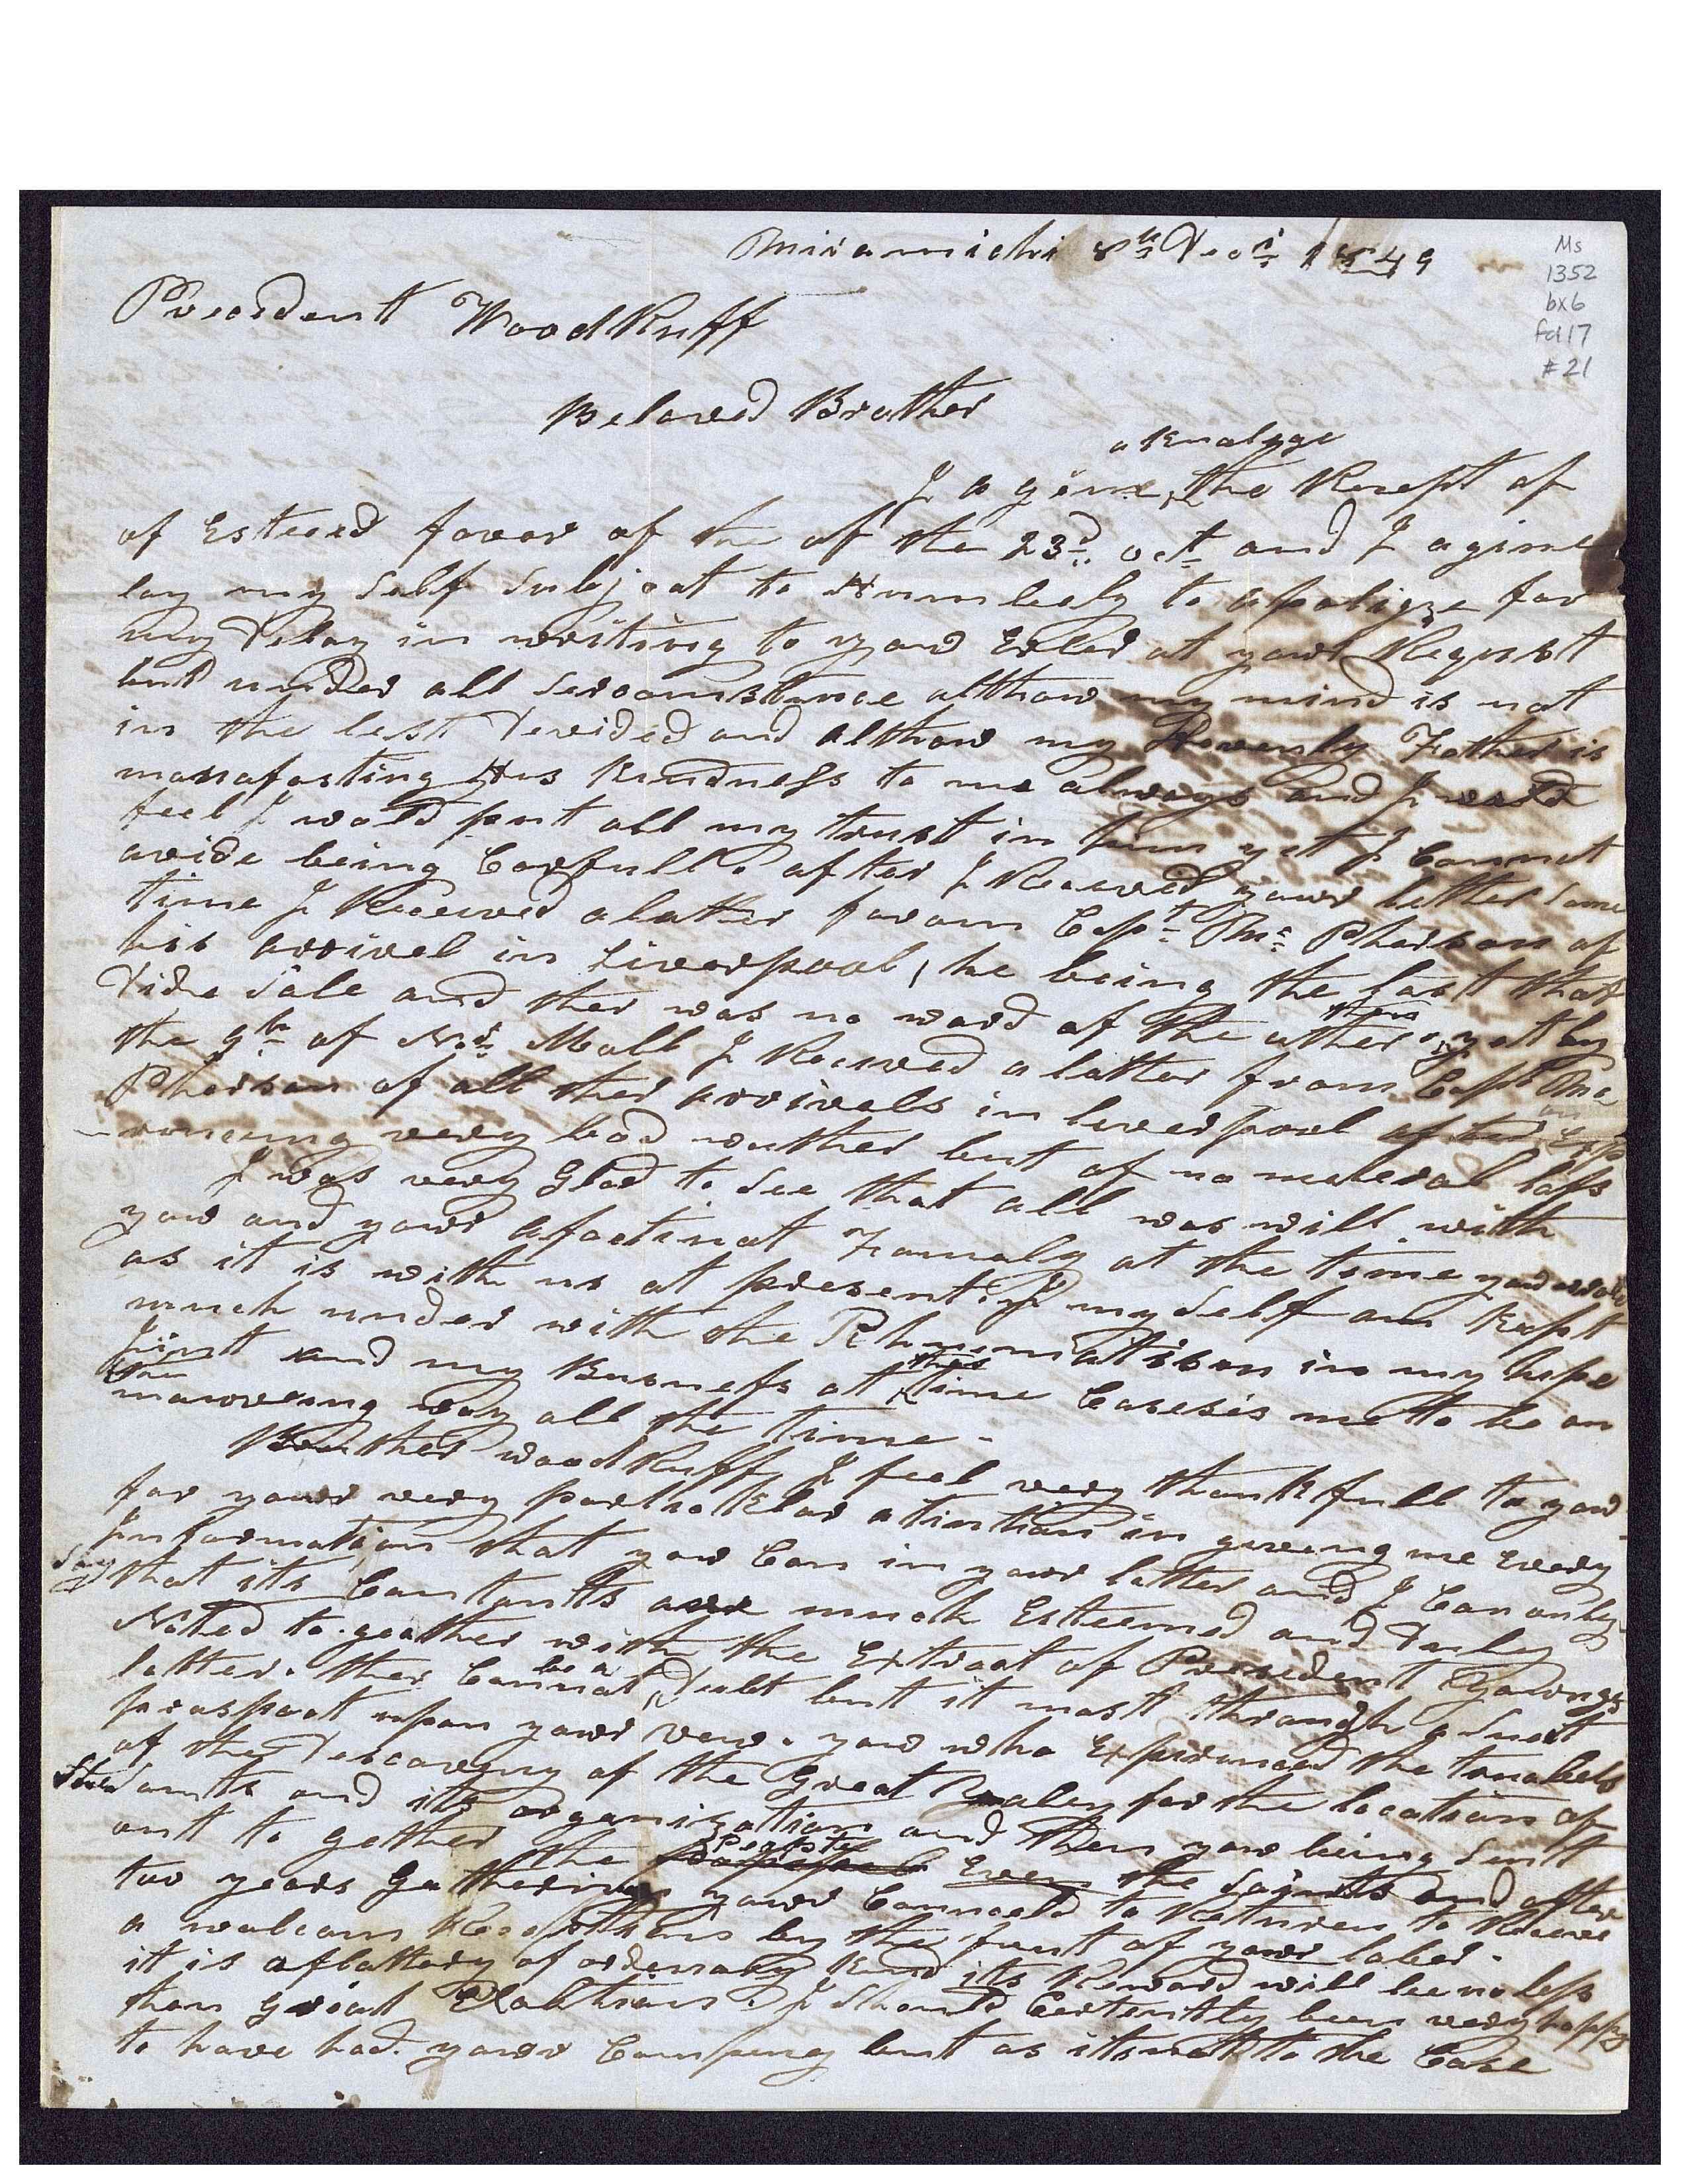 Miramichi 8th Decr 1849
Ms
1352
bx6
fd 17
#21
President WoodRuff
Beloved Brother
aknalyge
I agine the Recept of
of Esteeed favor of the of the 23d. oct and I agine
lay my Self Subject to Humbely to apoligze for
my Delay in writing to yow Erler at yowr Request
but under all Sercomstance althow my mind is not
in the lest Devided and althow my Hevenly Father is
manafasting His Kindness to me always and I
feel I wold put all my trust in him yet I Cannot
avide being Carfull. after I Received yowr letter Some
time I Received a latter from Capt. Mc Pherson of
his arrivel in Liverpool, he being the last that
Dide Sale and ther was no word of the others yet by
thare
the 9th of Novr. Mall I Received a latter from Capt Mc
Pherson of all ther arrivels in liverpool after
an
very bad wether but of no matereal loss
I was very Glad to See that all was will with
yow and yowr afactinat Famaly at the time yow
as it is with us at present. I my Self am Kept
much under with the Rhumatison in my hipe
Jint and my Busness at time Cases me to be on
this
the
mooveing way all the time -
Brother WoodRuff, I feel very thankfull to yow
for yowr very partickelar atintion in giveing me Every
Information that yow Can in yowr latter and I Can only
Say
that its Contants are much Esteemed and Duly
Noted to-geather with the Extract of President Yowngs
latter. ther Cannat Dubt but it most through a
be a
prospect upon yowr vew. yow who Expirenced the troubels
of the Descovery of the Great Valey for the location of
Saints and its organization and then yow being Sent
owt to gather the Even the Saynts and after
two years Gathering yowr Counceld to Returen to Receve
a welcom Receptions by the frut of yowr laber.
it is a flattery of ordenary Kind its Reward will be no less
than great Exaltion. I Should Certently been very happy
to have had yowr Company but as its not to the Case